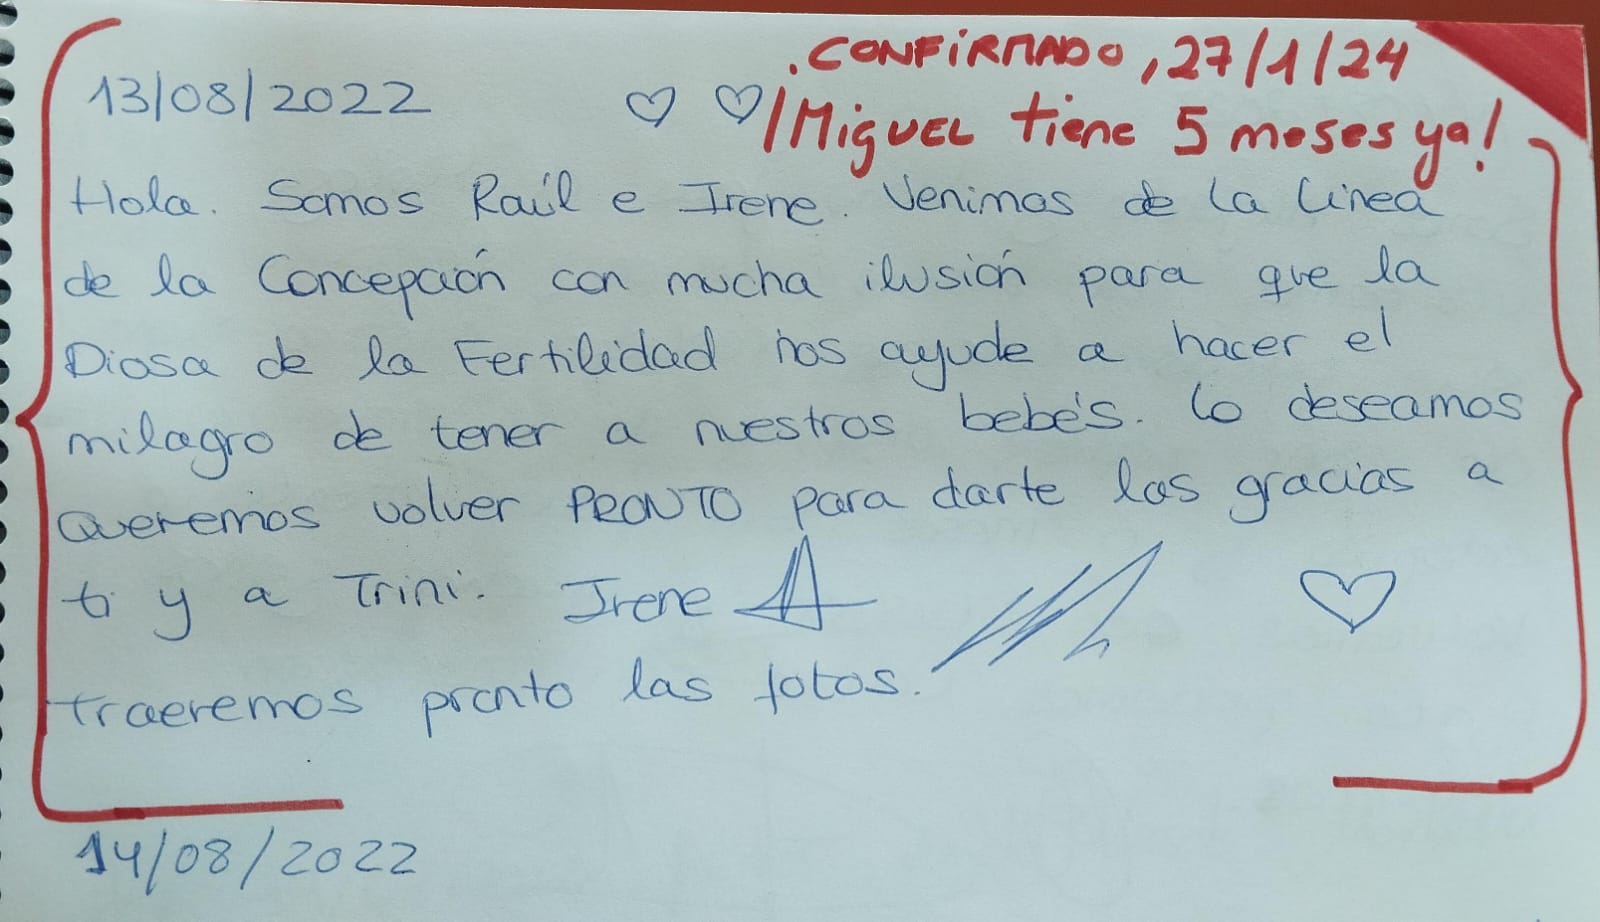 .CONFiRMADO, 27/1/24
13/08/2022 ♡ ♡
¡MiGUEL tiene 5 meses ya!
Hola. Somos Raúl e Irene. Venimos de La Línea
de la Concepción con mucha ilusión para que la
Diosa de la Fertilidad nos ayude a hacer el
milagro de tener a nuestros bebés. Lo deseamos
Queremos volver PRONTO para darte las gracias a
ti y a Trini. Irene
traeremos pronto las fotos.
14/08/2022